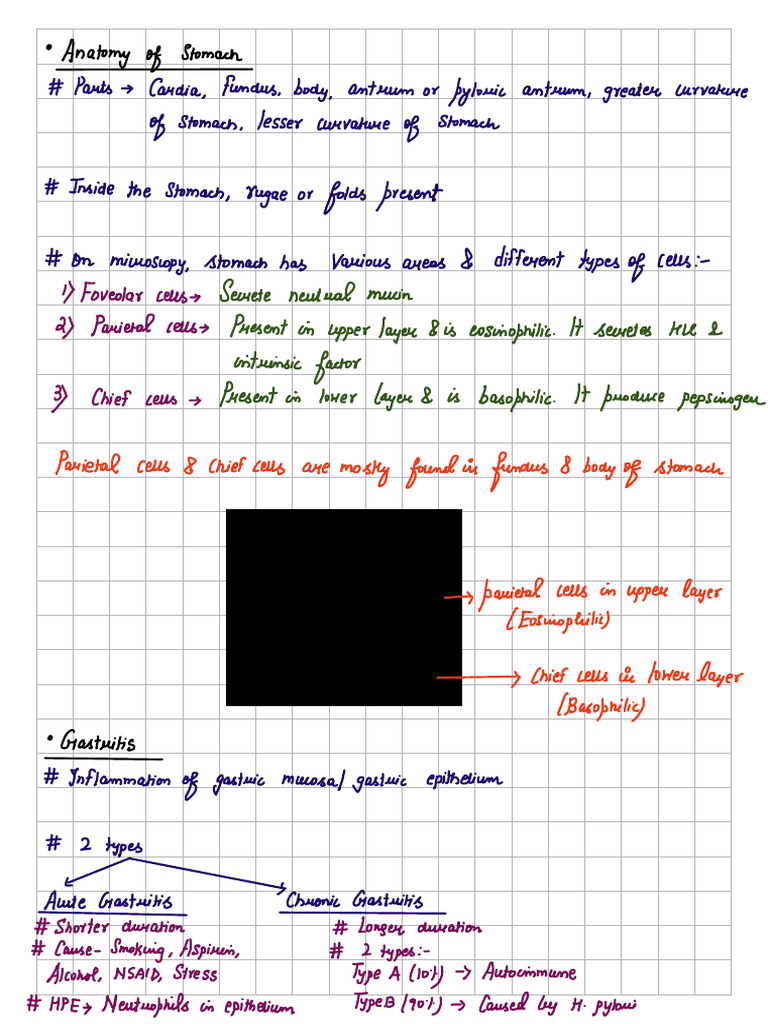 • Anatomy of Stomach
# Parts → Cardia, Fundus, body, antrum or pyloric antrum, greater curvature
of Stomach, lesser curvature of Stomach
# Inside the Stomach, rugae or folds present
# On microscopy, stomach has various areas & different types of cells:-
1) Foveolar cells → Secrete neutral mucin
2) Parietal cells → Present in upper layer & is eosinophilic. It secretes HCl &
intrinsic factor
3) Chief cells → Present in lower layer & is basophilic. It produce pepsinogen
Parietal cells & Chief cells are mostly found in fundus & body of stomach
→ parietal cells in upper layer
(Eosinophilic)
→ Chief cells in lower layer
(Basophilic)
• Gastritis
# Inflammation of gastric mucosa/gastric epithelium
# 2 types
Acute Gastritis
# Shorter duration
# Cause- Smoking, Aspirin,
Alcohol, NSAID, Stress
# HPE → Neutrophils in epithelium
Chronic Gastritis
# Longer duration
# 2 types:-
Type A (10%) → Autoimmune
Type B (90%) → Caused by H. pylori